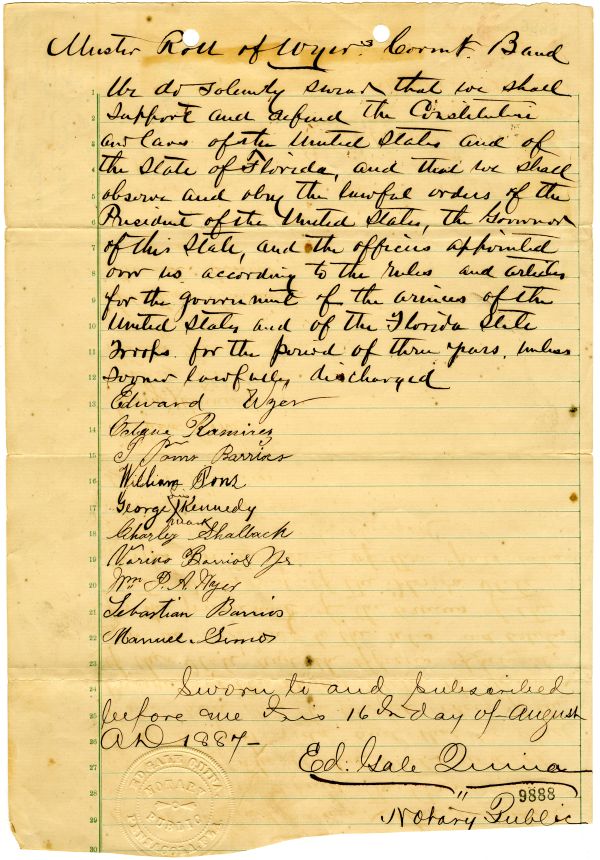 Muster Roll of Wyer's Cornt. Band
We do solemnly swear that we shall
support and defend the Constitution
and laws of the United States and of
the State of Florida, and that we shall
observe and obey the lawful orders of the
President of the United States, the Governor
of this State, and the officers appointed
over us according to the rules and articles
for the government of the armies of the
United States and of the Florida State
Troops for the period of three years, unless
sooner lawfully discharged
Edward Wyer
Ramirez
Barrios
William Bonz
George Kennedy
mark
Charley Shalback
Varino Barrios Jr
Wm P. A. Wyer
Sebastian Barrios
Manuel Simos
Sworn to and Subscribed
before me this 16th day of August
AD 1887-
Ed: Gale Quina
9888
Notary Public
NOTARY
PUBLIC
1
2
3
4
5
6
7
8
9
10
11
12
13
14
15
16
17
18
19
20
21
22
23
24
25
26
27
28
29
30